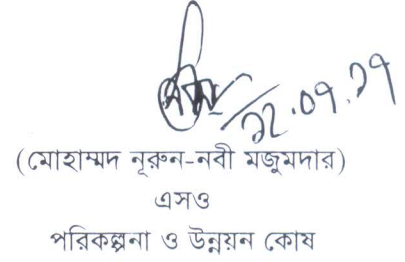 ১২.০৭.১৭
(মোহাম্মদ নূরুন-নবী মজুমদার)
এসও
পরিকল্পনা ও উন্নয়ন কোষ